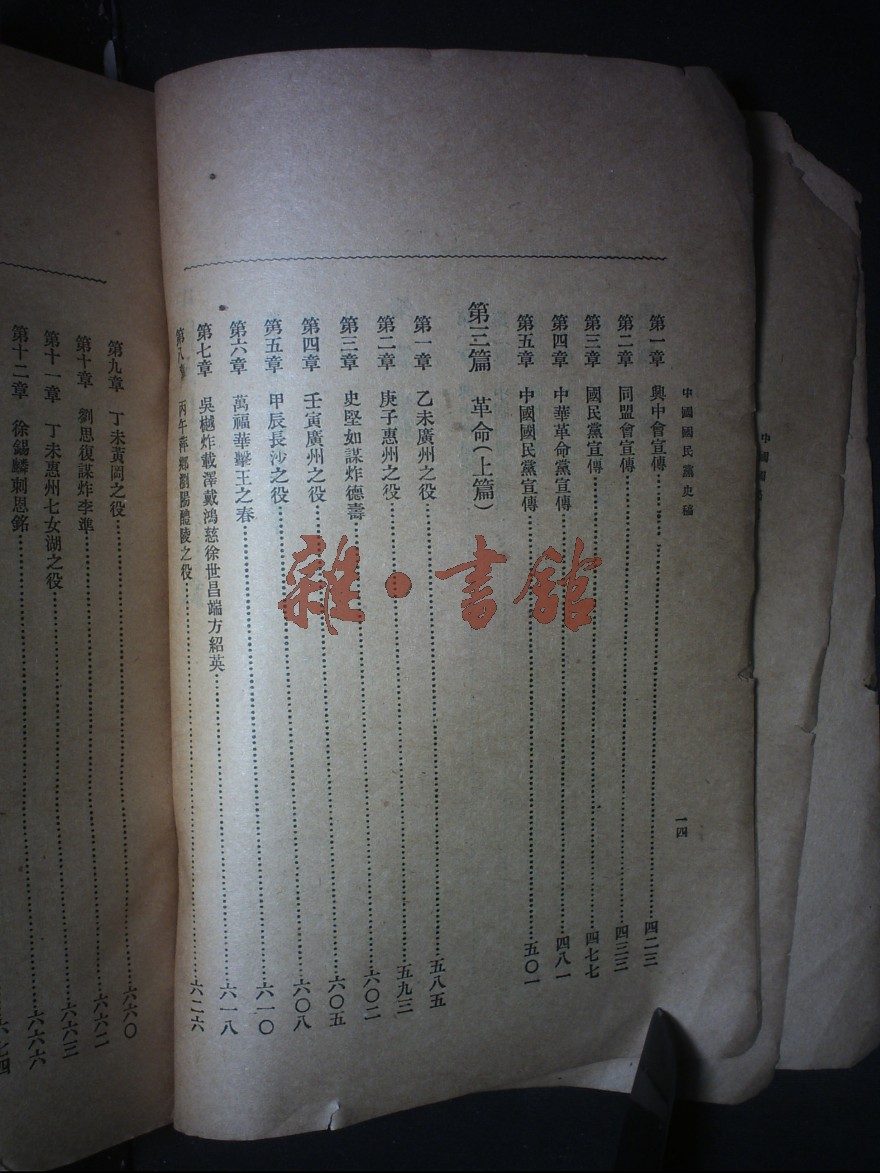 中國國民黨史稿
一四
第一章 興中會宣傳……四二三
第二章 同盟會宣傳……四三三
第三章 國民黨宣傳……四七七
第四章 中華革命黨宣傳……四八一
第五章 中國國民黨宣傳……五〇一
第三篇 革命(上篇)
第一章 乙未廣州之役……五八五
第二章 庚子惠州之役……五九三
第三章 史堅如謀炸德壽……六〇二
第四章 壬寅廣州之役……六〇五
第五章 甲辰長沙之役……六〇八
第六章 萬福華擊王之春……六一〇
第七章 吳樾炸載澤戴鴻慈徐世昌端方紹英……六一八
第八章 丙午萍鄉瀏陽醴陵之役……六二六
第九章 丁未黃岡之役……六六〇
第十章 劉思復謀炸李準……六六二
第十一章 丁未惠州七女湖之役……六六三
第十二章 徐錫麟刺恩銘……六六六
六七四
中國國
雜·書館